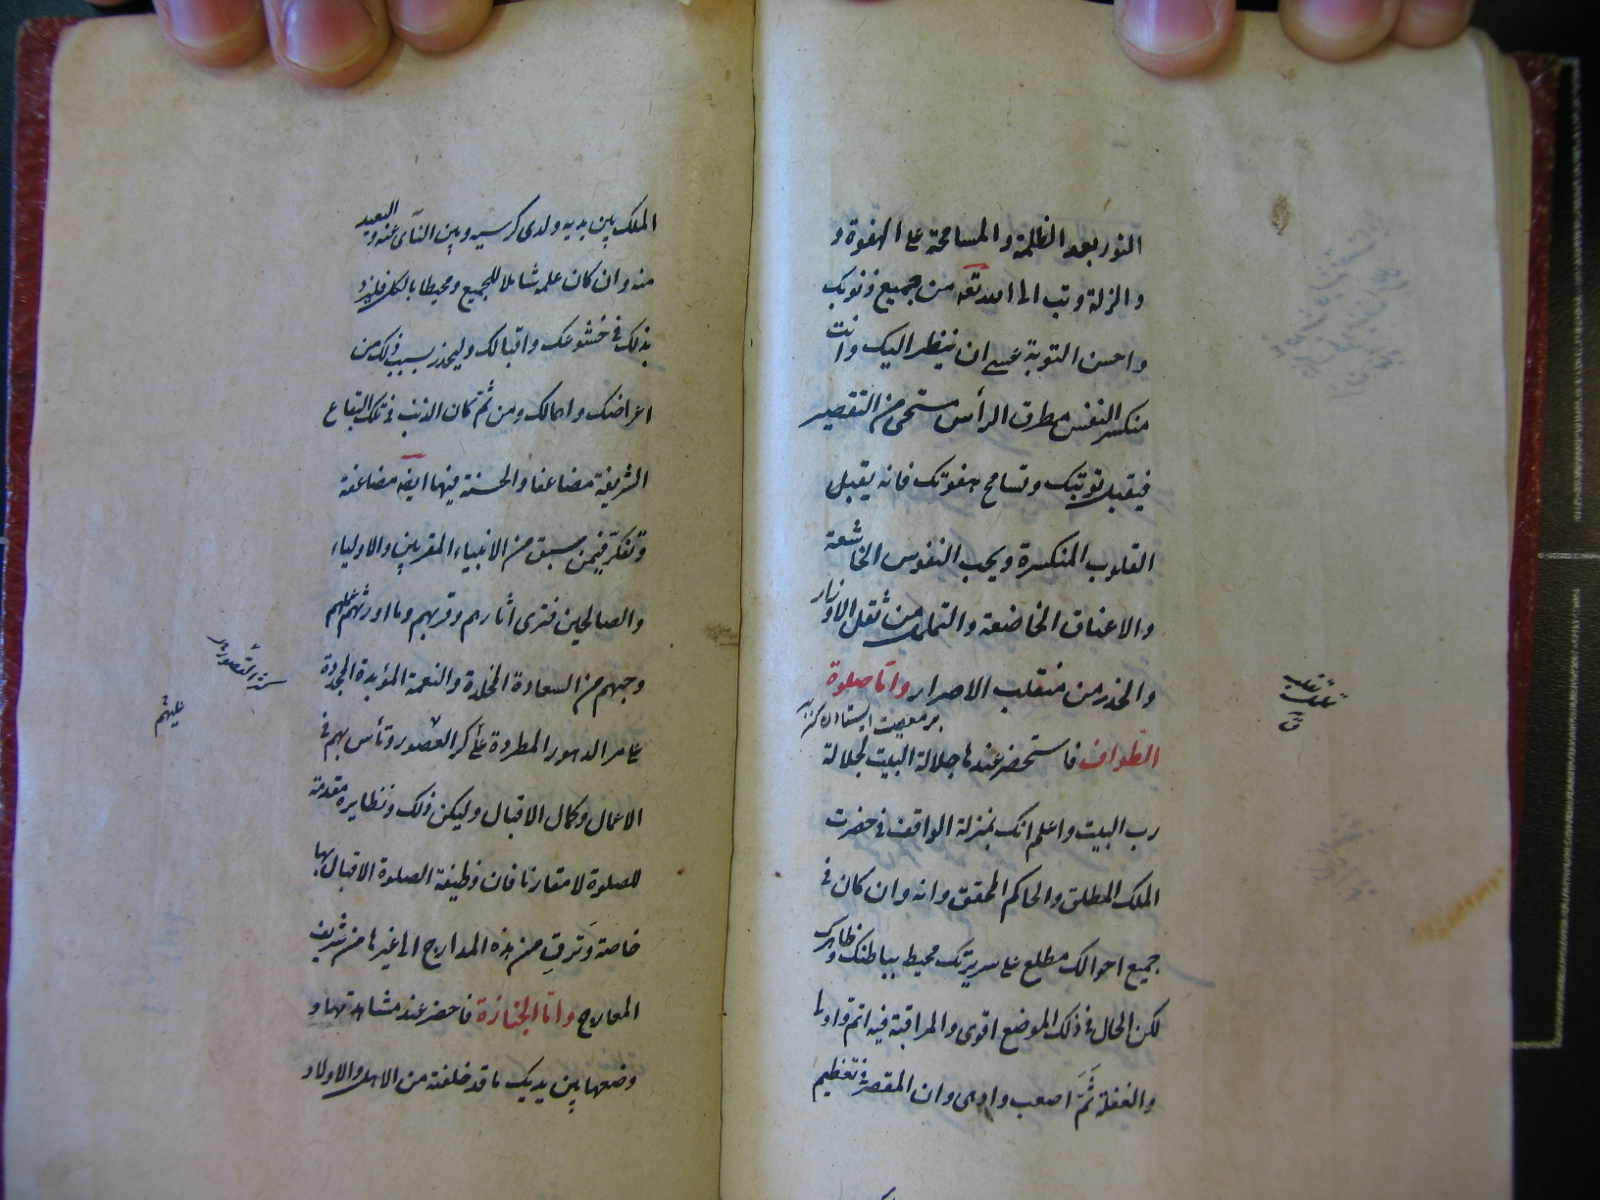 النور بعد الظلمة والمسامحة على الهفوة و
والزلة وتب الى الله تعه من جميع ذنوبك
واحسن التوبة عسى ان ينظر اليك وانت
منكسر النفس مطرق الرأس مستحى من التقصير
فيقبل توبتك وتسامح هفوتك فانه يقبل
القلوب المنكسرة ويحب النفوس الخاشعة
والاعناق الخاضعة والتململ من ثقل الاوزار
والحذر من منقلب الاصرار واما صلوة
الطواف فاستحضر عندها جلالة البيت لجلالة
رب البيت واعلم انك بمنزلة الواقف فى حضرت
الملك المطلق والحاكم المحقق وانه وان كان فى
جميع احوالك مطلع على سريرتك محيط بباطنك وظاهرك
لكن الحال فى ذلك الموضع اقوى والمراقبة فيه اتم واولى
والغفلة ثَمَّ اصعب وادهى وان المقصر فى تعظيم
الملك بين يديه ولدى كرسيه وبين النآى عنه والبعيد
منه وان كان علمه شاملا للجميع ومحيطا بالكل فليزد
بذلك فى خشوعك واقبالك وليحذر بسبب ذلك من
اعراضك واهمالك ومن ثم كان الذنب فى تلك البقاع
الشريفة مضاعفا والحسنة فيها ايضه مضاعفة
وتفكر فيمن سبق من الانبياء المقربين والاولياء
والصالحين فترى اثارهم وقربهم وما اورثهم علمهم
وحبهم من السعادة المخلدة والنعمة المؤبدة المجددة
على مر الدهور المطردة على كر العصور وتأس بهم فى
الاعمال وكمال الاقبال وليكن ذلك ونظايره مقدمة
للصلوة لا مقارنا فان وظيفة الصلوة الاقبال بها
خاصة وَترقِ من هذه المدارج الى غيرها من شريف
المعارج واما الجنازة فاحضر عند مشاهدتها و
وضعها بين يديك ما قد خلفته من الاهل والاولاد